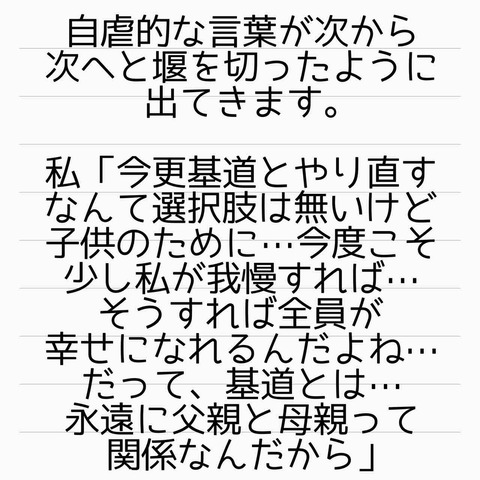 自虐的な言葉が次から
次へと堰を切ったように
出てきます。
私「今更基道とやり直す
なんて選択肢は無いけど
子供のために…今度こそ
少し私が我慢すれば…
そうすれば全員が
幸せになれるんだよね…
だって、基道とは…
永遠に父親と母親って
関係なんだから」